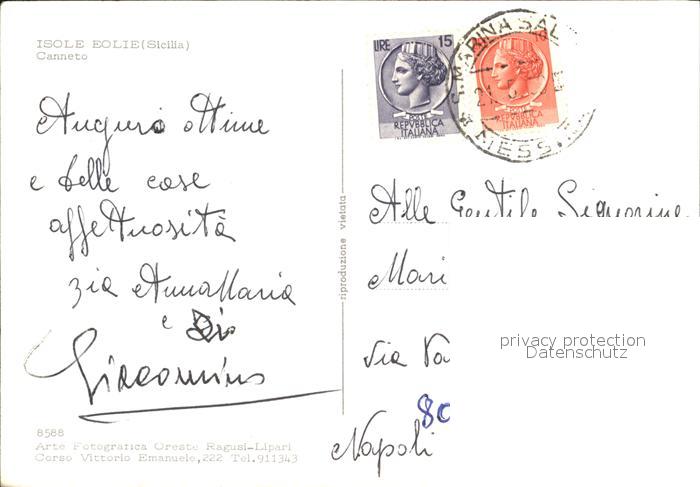 ISOLE EOLIE (Sicilia)
Canneto
Auguro ottime
e belle cose
affettuosità
zia Anna Maria
e
Giacomino
8588
Arte Fotografica Oreste Ragusi-Lipari
Corso Vittorio Emanuele, 222 Tel. 911343
riproduzione vietata
LIRE 15
POSTE
REPVBBLICA
ITALIANA
POSTE
REPVBBLICA
ITALIANA
S. MARINA SAL
MESS
21
Alle Gentile Signorine
Mari
Via Va
80
Napoli
privacy protection
Datenschutz